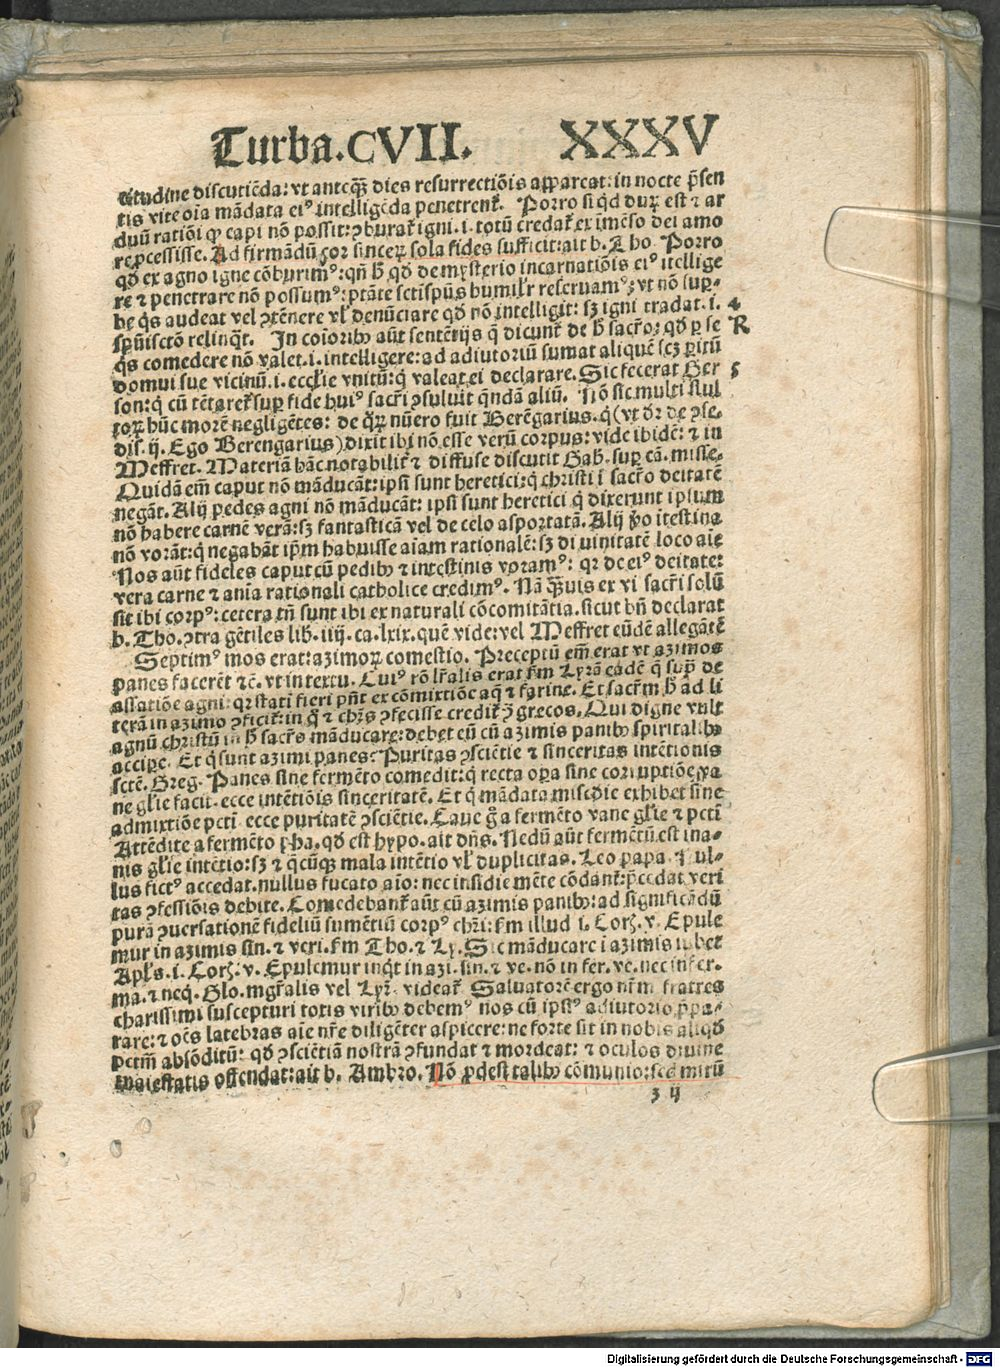 Turba.CVII. XXXV
titudine discutiẽda: vt anteqꝫ dies resurrectiõis appareat: in nocte p̃sen
tis vite oĩa mãdata eiꝰ intelligẽda penetrent᷑. Porro si qd durꝝ est ⁊ ar
duũ ratiõi qꝫ capi nõ possit: ꝯburat᷑ igni .i. totũ credat᷑ ex ĩmẽso dei amo
re ꝓcessisse. Ad firmãdũ cor sincerꝝ sola fides sufficit: ait b. Tho. Porro
qd ex agno igne cõburimꝰ: qñ h̃ qd de mysterio incarnatiõis eiꝰ ĩtellige
re ⁊ penetrare nõ possumꝰ: ptãte sctispũs humilr̃ reseruamꝰ: vt nõ suꝑ⸗
be qs̃ audeat vel ꝯtẽnere vl̃ denũciare qd nõ intelligit: sꝫ igni tradat .i. 4
spũiscto relinqt. In coĩoribꝰ aũt sentẽtijs q̃ dicunt᷑ de h̃ sacr̃o: qd ꝑ se R
qs̃ comedere nõ valet .i. intelligere: ad adiutoriũ sumat aliquẽ scꝫ ꝑitũ
domui sue vicinũ .i. ecclie vnitũ: q̃ valeat ei declarare. Sic fecerat Ger 5
son: q̃ cũ tẽtaret᷑ suꝑ fide huiꝰ sacr̃i ꝯsuluit qndã aliũ. Nõ sic multi stul
torꝝ hũc morẽ negligẽtes: de qrꝝ nũero fuit Berẽgarius. q̃ (vt dr̃ de ꝯse.
dis. ij. Ego Berengarius) dixit ibi nõ esse verũ corpus: vide ibidẽ: ⁊ in
Meffret. Materiã hãc notabilit᷑ ⁊ diffuse discutit Gab. suꝑ cã. misse.
Quidã em̃ caput nõ mãducãt: ipsi sunt heretici: q̃ christi ĩ sacr̃o deitatẽ
negãt. Alij pedes agni nõ mãducãt: ipsi sunt heretici q̃ dixerunt ipsum
nõ habere carnẽ verã: sꝫ fantasticã vel de celo asportatã. Alij ꝟo ĩtestina
nõ vorãt: q̃ negabãt ip̃m habuisse aĩam rationalẽ: sꝫ diuinitatẽ loco aĩe
Nos aũt fideles caput cũ pedibꝰ ⁊ intestinis voramꝰ: qr de eiꝰ deitate:
vera carne ⁊ anĩa rationali catholice credimꝰ. Nã qꝫuis ex vi sacr̃i solũ
sit ibi corpꝰ: cetera tñ sunt ibi ex naturali cõcomitãtia. sicut bñ declarat
b. Tho. ꝯtra gẽtiles lib. iiij. ca. lxix. quẽ vide: vel Meffret eũdẽ allegãtẽ
Septimꝰ mos erat: azimorꝝ comestio. Preceptũ em̃ erat vt azimos
panes facerẽt ⁊c̃. vt in textu. Cuiꝰ rõ lr̃alis erat fm Lyrã eadẽ q̃ supͣ de
assatiõe agni: qr statĩ fieri pñt ex cõmixtiõe aq̃ ⁊ farine. Et sacr̃m h̃ ad li
terã in azimo ꝯficit᷑: in q̃ ⁊ chr̃s ꝯfecisse credit᷑ ꝯ̃ grecos. Qui digne vult
agnũ christũ in h̃ sacr̃o mãducare: debet eũ cũ azimis panibꝰ spiritalibꝰ
accipe. Et q̃ sunt azimi panes? Puritas ꝯsciẽtie ⁊ sinceritas intẽtionis
sctẽ. Greg. Panes sine fermẽto comedit: q̃ recta oꝑa sine corruptiõe va
ne glie facit. ecce intẽtiõis sinceritatẽ. Et q̃ mãdata miscdie exhibet sine
admixtiõe pcti. ecce puritatẽ ꝯsciẽtie. Caue g̃ a fermẽto vane glie ⁊ pcti
Attẽdite a fermẽto pha. qd est hypo. ait dñs. Nedũ aũt fermẽtũ est ina⸗
nis glie intẽtio: sꝫ ⁊ q̃cũqꝫ mala intẽtio vl̃ duplicitas. Leo papa. Nul⸗
lus fictꝰ accedat. nullus fucato aĩo: nec insidie mẽte cõdant᷑: p̃cedat veri
tas ꝯfessiõis debite. Comedebant᷑ aũt cũ azimis panibꝰ: ad significãdũ
purã ꝯuersationẽ fideliũ sumẽtiũ corpꝰ chr̃i: fm illud .i. Corꝫ. v. Epule
mur in azimis sin. ⁊ veri. fm Tho. ⁊ Ly. Sic mãducare ĩ azimis iubet
Apl̃s .i. Corꝫ: v. Epulemur inqt in azi. sin. ⁊ ve. nõ in fer. ve. nec in fer.
ma. ⁊ neq̃. Glo. mgr̃alis vel Lyr̃. videat᷑. Saluatorẽ ergo nr̃m fratres
charissimi suscepturi totis viribꝰ debemꝰ nos cũ ipsiꝰ adiutorio p̃pa⸗
rare: ⁊ oẽs latebras aĩe nr̃e diligẽter aspicere: ne forte sit in nobis aliqd
pctm̃ absõditũ: qd ꝯsciẽtiã nostrã ꝯfundat ⁊ mordeat: ⁊ oculos diuine
maiestatis offendat: ait b. Ambro. Nõ ꝓdest talibꝰ cõmunio: sed mirũ
z ij
Digitalisierung gefördert durch die Deutsche Forschungsgemeinschaft - DFG